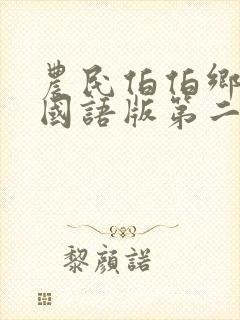 農民伯伯鄉
國語版第二
黎顏諾